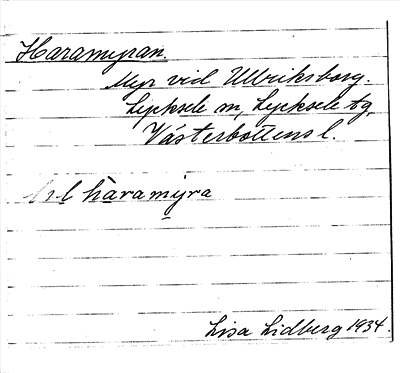 Haramyran.
Myr vid Ullriksborg.
Lycksele m, Lycksele tg,
Västerbottens l.
haramyra
Lisa Lidberg 1934.